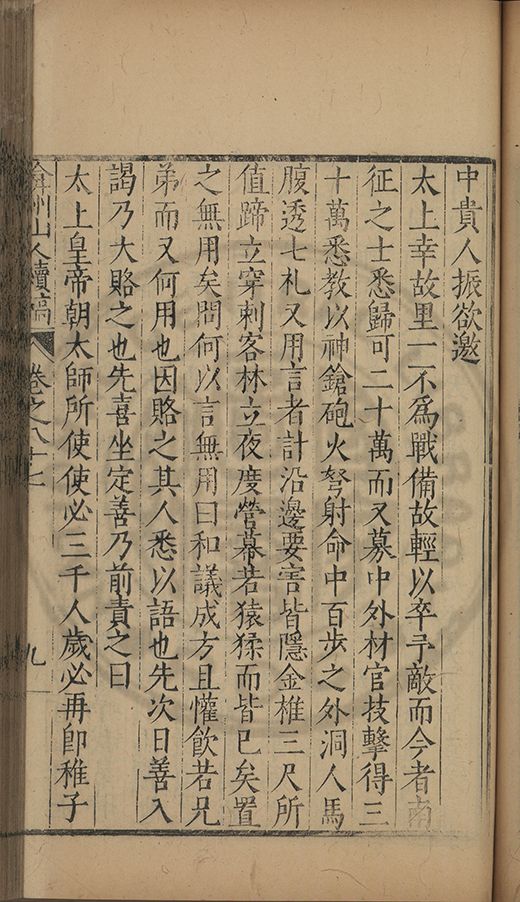 中貴人振欲邀
太上幸故里一不爲戰備故輕以卒予敵而今者南
征之士悉歸可二十萬而又募中外材官技擊得三
十萬悉教以神鎗砲火弩射命中百步之外洞人馬
腹透七札又用言者計沿邊要害皆隱金椎三尺所
值蹄立穿刺客林立夜度營幕若猿猱而皆已矣置
之無用矣問何以言無用曰和議成方且懽飲若兄
弟而又何用也因賂之其人悉以語也先次日善入
謁乃大賂之也先喜坐定善乃前責之曰
太上皇帝朝太師所使使必三千人歲必再卽稚子
弇州山人續稿 卷之八十七 九